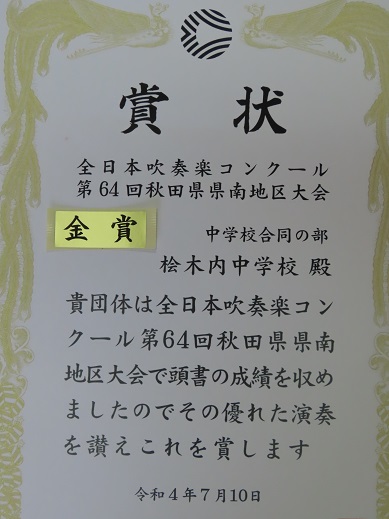 賞状
全日本吹奏楽コンクール
第64回秋田県県南地区大会
金賞
中学校合同の部
桧木内中学校 殿
貴団体は全日本吹奏楽コン
クール第64回秋田県県南
地区大会で頭書の成績を収め
ましたのでその優れた演奏
を讃えこれを賞します
令和4年7月10日